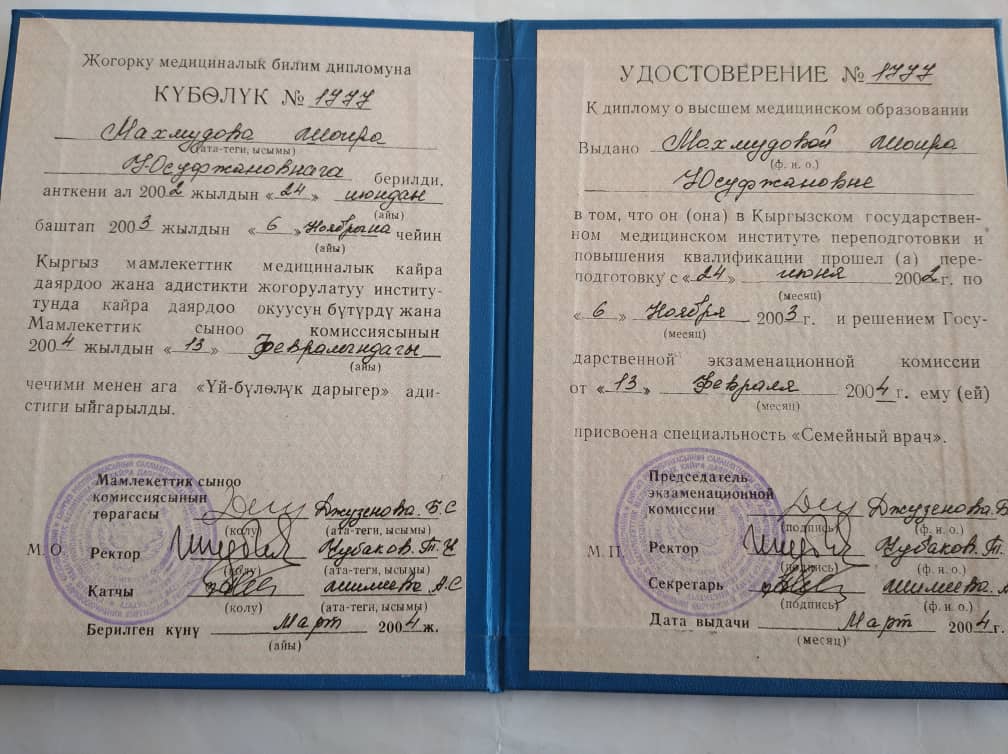 Жогорку медициналык билим дипломуна
КҮБӨЛҮК № 1777
Махмудова Шоира
(ата-теги, ысымы)
Юсуфжановнага берилди,
анткени ал 2002 жылдын «24» июндан
(айы)
баштап 2003 жылдын «6» Ноябрына чейин
(айы)
Кыргыз мамлекеттик медициналык кайра
даярдоо жана адистикти жогорулатуу институ-
тунда кайра даярдоо окуусун бүтүрдү жана
Мамлекеттик сыноо комиссиясынын
2004 жылдын «13» Февралындагы
(айы)
чечими менен ага «Үй-бүлөлүк дарыгер» ади-
стиги ыйгарылды.
Мамлекеттик сыноо
комиссиясынын
төрагасы Джузенова. Б. С
(колу) (ата-теги, ысымы)
М. О. Ректор Чубаков. Т. Ч
(колу) (ата-теги, ысымы)
Катчы А. С
(колу) (ата-теги, ысымы)
Берилген күнү Март 2004 ж.
(айы)
УДОСТОВЕРЕНИЕ № 1777
К диплому о высшем медицинском образовании
Выдано Махмудовой Шоира
(ф. и. о.)
Юсуфжановне
в том, что он (она) в Кыргызском государствен-
ном медицинском институте переподготовки и
повышения квалификации прошел (а) пере-
подготовку с «24» июня 2002 г. по
(месяц)
«6» Ноября 2003 г. и решением Госу-
(месяц)
дарственной экзаменационной комиссии
от «13» Февраля 2004 г. ему (ей)
(месяц)
присвоена специальность «Семейный врач».
Председатель
экзаменационной
комиссии Джузенова. Б
(подпись) (ф. и. о.)
М. П. Ректор Чубаков. Т.
(подпись) (ф. и. о.)
Секретарь
(подпись) (ф. и. о.)
Дата выдачи Март 2004 г.
(месяц)